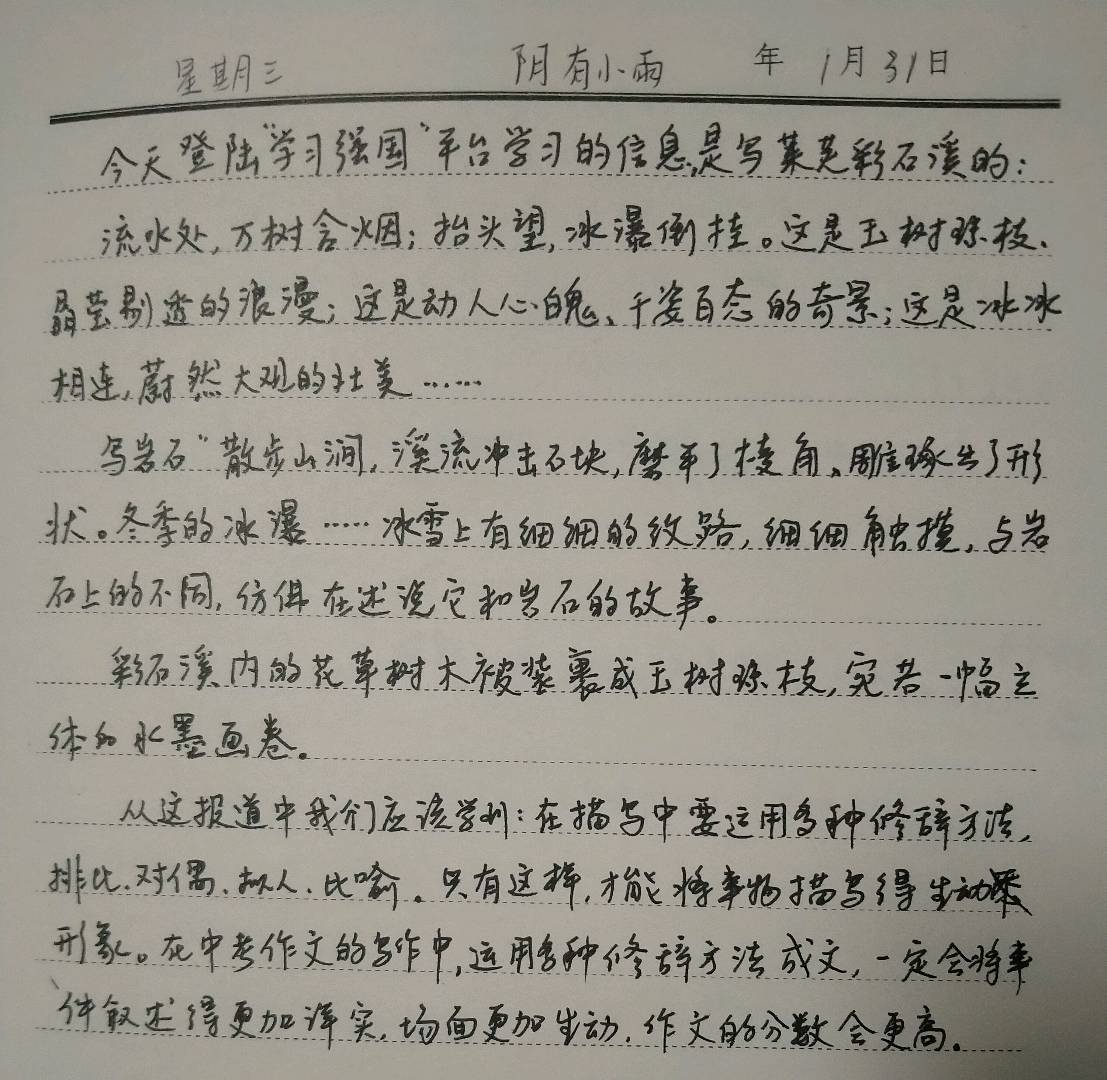 星期三 阴有小雨 年 1月31日
今天登陆"学习强国"平台学习的信息,是写莱芜彩石溪的:
流水处,万树含烟;抬头望,冰瀑倒挂。这是玉树琼枝、
晶莹剔透的浪漫;这是动人心魄、千姿百态的奇景;这是冰冰
相连,蔚然大观的壮美……
写岩石"散步山涧,溪流冲击石块,磨平了棱角、雕琢出了形
状。冬季的冰瀑……冰雪上有细细的纹路,细细触摸,与岩
石上的不同,仿佛在述说它和岩石的故事。
彩石溪内的花草树木被装裹成玉树琼枝,宛若一幅立
体的水墨画卷。
从这报道中我们应该学到:在描写中要运用多种修辞方法,
排比、对偶、拟人、比喻。只有这样,才能将事物描写得生动
形象。在中考作文的写作中,运用多种修辞方法成文,一定会将事
件叙述得更加详实,场面更加生动,作文的分数会更高。